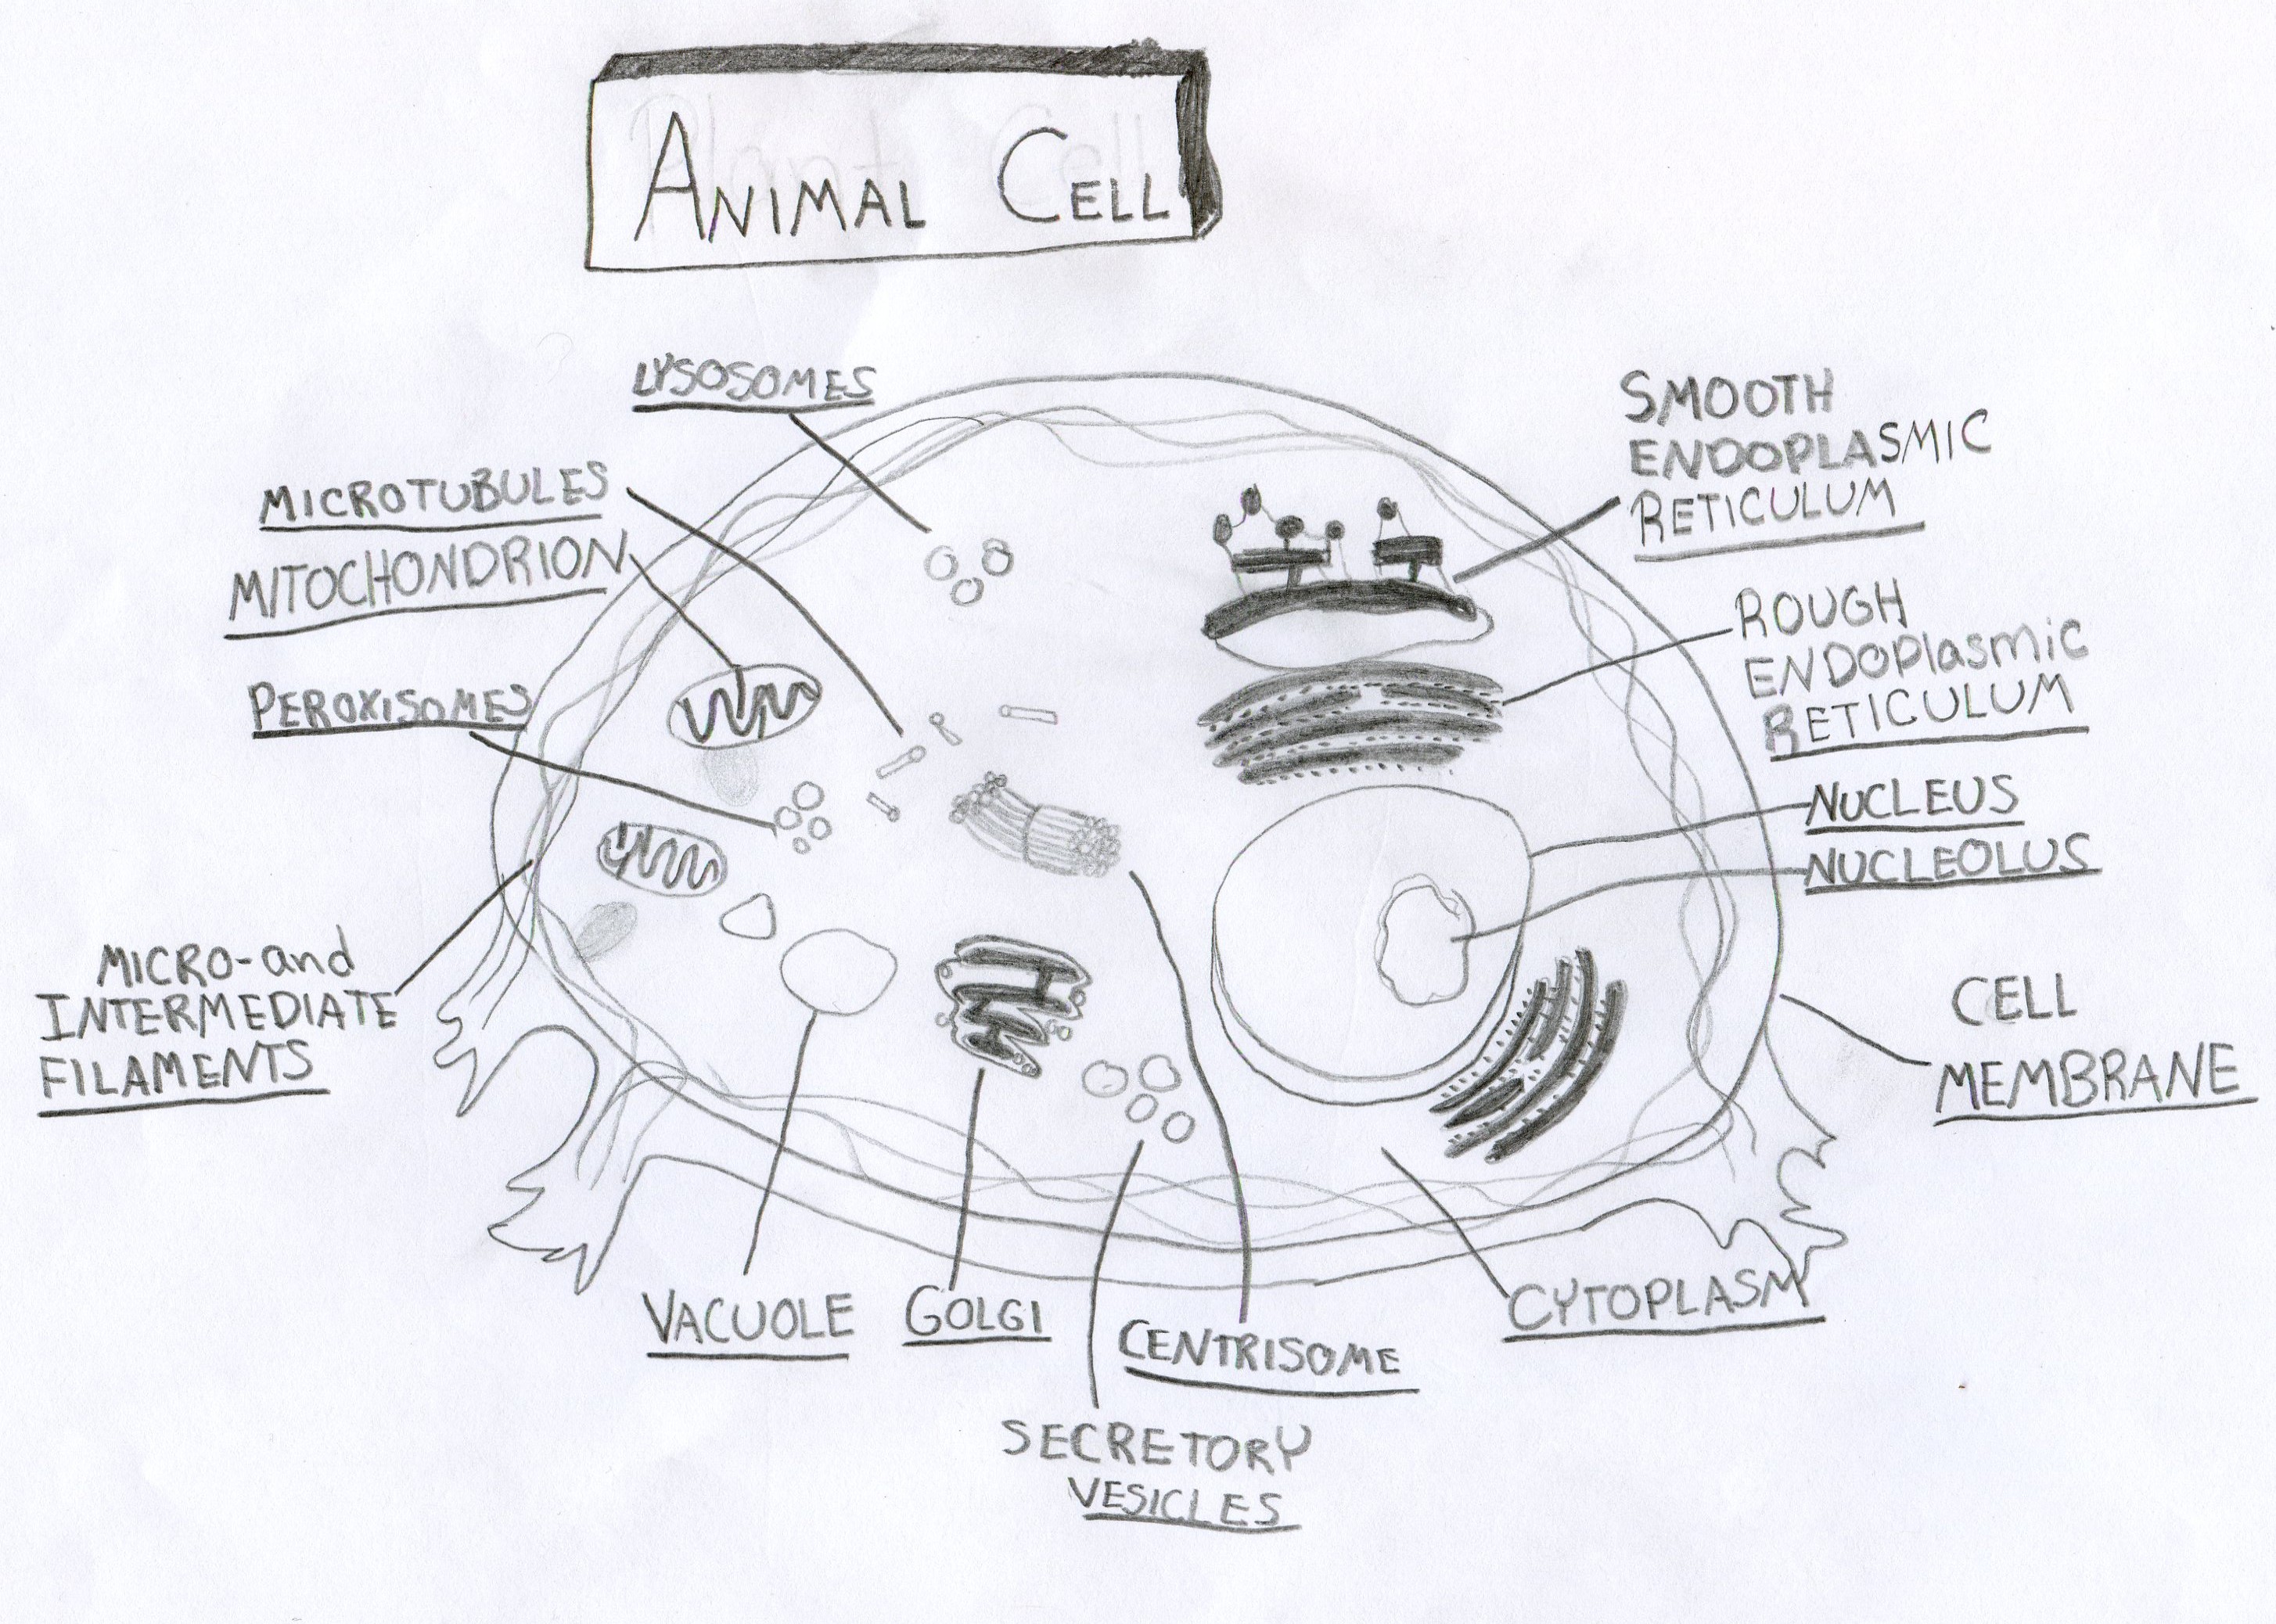 ANIMAL CELL
LYSOSOMES
MICROTUBULES
MITOCHONDRION
PEROXISOMES
MICRO-and
INTERMEDIATE
FILAMENTS
SMOOTH
ENDOPLASMIC
RETICULUM
ROUGH
ENDOPlasmic
RETICULUM
NUCLEUS
NUCLEOLUS
CELL
MEMBRANE
VACUOLE
GOLGI
CENTRISOME
CYTOPLASM
SECRETORY
VESICLES